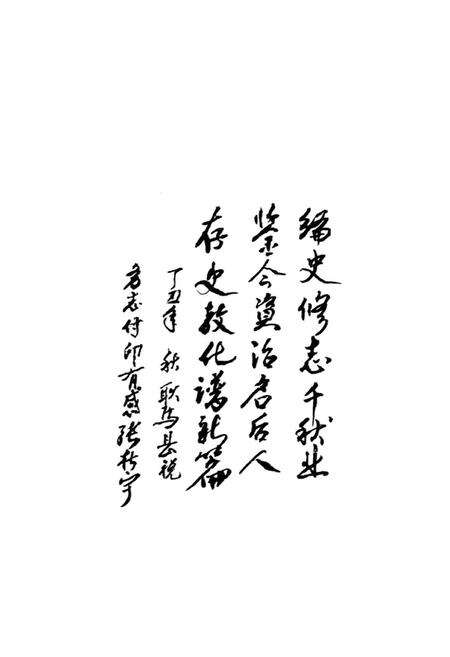 编史修志千秋业
鉴今资治启后人
存史教化谱新篇
丁丑年 秋 耿马县说
方志付印有感 张